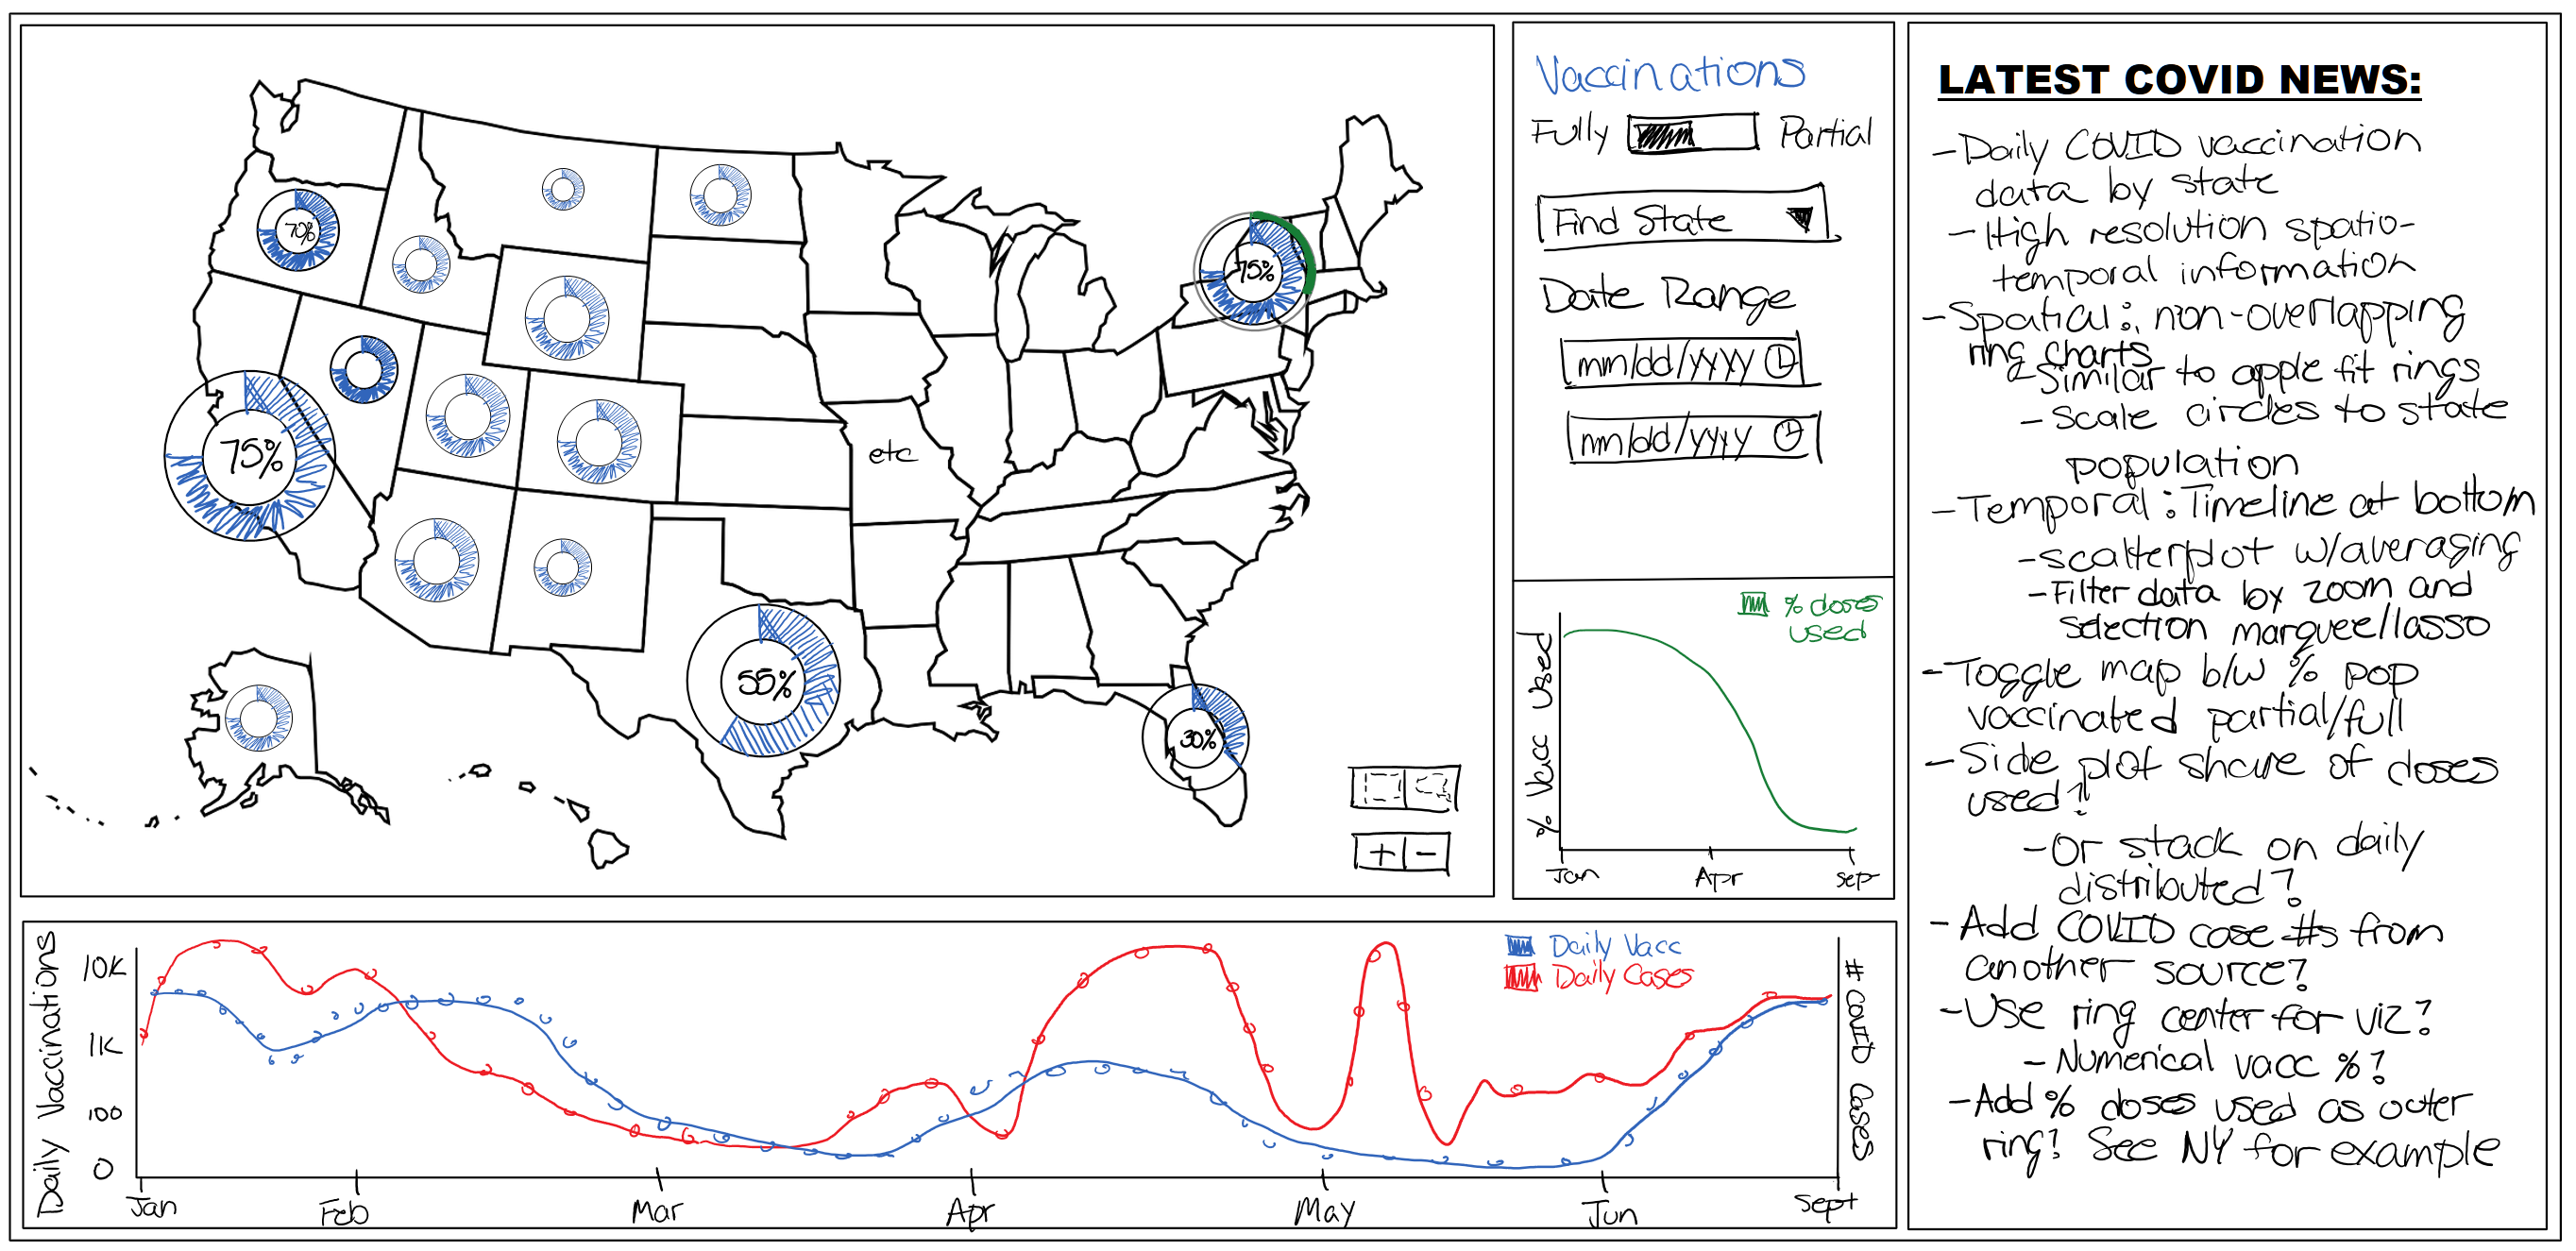 70%
75%
75%
55%
30%
etc
+ -
Vaccinations
Fully Partial
Find State
Date Range
mm/dd/yyyy
mm/dd/yyyy
% doses
used
% Vacc Used
Jan Apr Sept
Daily Vaccinations
10K
1K
100
0
Jan Feb Mar Apr May Jun Sept
Daily Vacc
Daily Cases
# COVID Cases
LATEST COVID NEWS:
- Daily COVID vaccination
data by state
- High resolution spatio-
temporal information
- Spatial: non-overlapping
ring charts
- Similar to apple fit rings
- Scale circles to state
population
- Temporal: Timeline at bottom
- scatterplot w/averaging
- Filter data by zoom and
selection marquee/lasso
- Toggle map b/w % pop
vaccinated partial/full
- Side plot share of doses
used?
- Or stack on daily
distributed?
- Add COVID case #s from
another source?
- Use ring center for viz?
- Numerical vacc %?
- Add % doses used as outer
ring? See NY for example